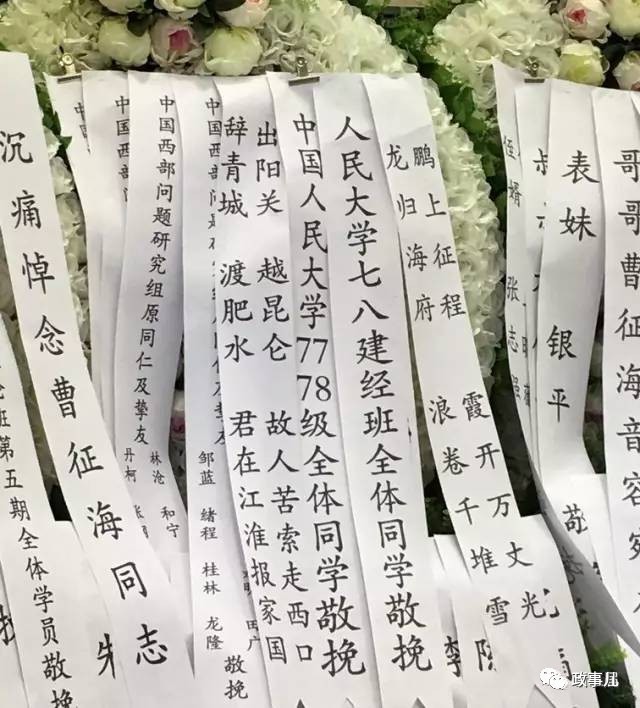 班第五期全体学员敬挽
沉痛悼念曹征海同志
中国
中国西部问
中国西部问题研究组原同仁及挚友
林沧 和宁
丹柯 张
中国西部问题
及挚友
邹蓝 绪程 桂林 龙隆 田广 敬挽
出阳关 越昆仑 故人苦索走西口
辞青城 渡肥水 君在江淮报家国
中国人民大学77 78级全体同学敬挽
人民大学七八建经班全体同学敬挽
鹏上征程 霞开万丈光
龙归海府 浪卷千堆雪
侄婿 张志强
叔
表妹 银平 敬
哥哥曹征海音容
政事儿